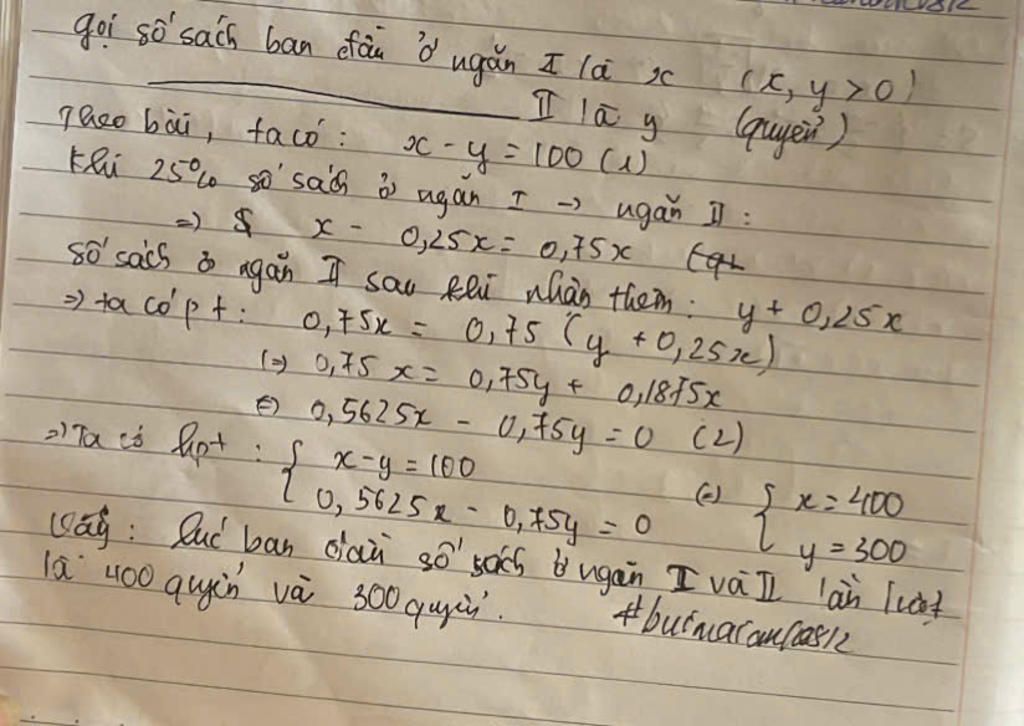 gọi số sách ban đầu ở ngăn I là x (x, y > 0)
II là y (quyển)
Theo bài, ta có: x - y = 100 (1)
Khi 25% số sách ở ngăn I → ngăn II:
=> x - 0,25x = 0,75x
số sách ở ngăn II sau khi nhận thêm: y + 0,25x
=> ta có pt: 0,75x = 0,75 (y + 0,25x)
(=) 0,75x = 0,75y + 0,1875x
(=) 0,5625x - 0,75y = 0 (2)
=> Ta có hpt: { x - y = 100 (=) { x = 400
0,5625x - 0,75y = 0 y = 300
Vậy: lúc ban đầu số sách ở ngăn I và II lần lượt
là 400 quyển và 300 quyển.